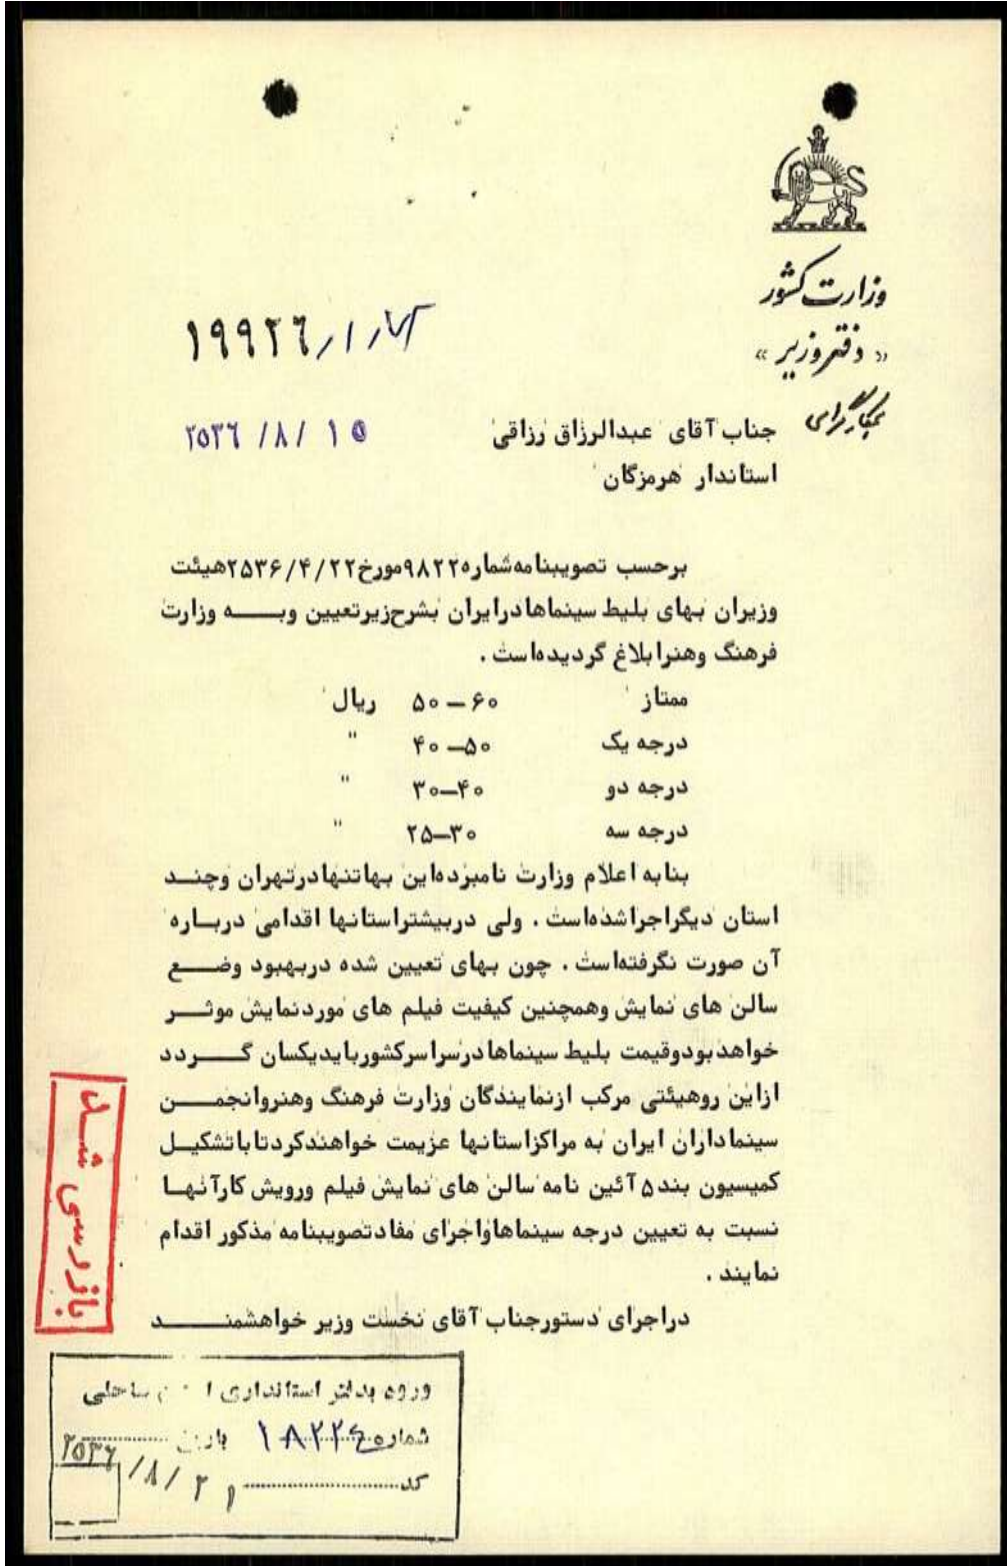 وزارت کشور
« دفتر وزیر »
۱۹۹۲۶/۱/
۲۵۳۶ /۸/ ۱۵
جناب آقای عبدالرزاق رزاقی
استاندار هرمزگان
برحسب تصویبنامه شماره ۹۸۲۲ مورخ ۲۵۳۶/۴/۲۲ هیئت
وزیران بهای بلیط سینماها درایران بشرح زیر تعیین وبه وزارت
فرهنگ وهنر ابلاغ گردیده است .
ممتاز ۶۰ – ۵۰ ریال
درجه یک ۵۰ – ۴۰ "
درجه دو ۴۰ – ۳۰ "
درجه سه ۳۰ – ۲۵ "
بنابه اعلام وزارت نامبرده این بها تنها در تهران وچند
استان دیگر اجرا شده است . ولی در بیشتر استانها اقدامی درباره
آن صورت نگرفته است . چون بهای تعیین شده در بهبود وضع
سالن های نمایش وهمچنین کیفیت فیلم های مورد نمایش موثر
خواهد بود وقیمت بلیط سینماها در سراسر کشور باید یکسان گردد
ازاین رو هیئتی مرکب از نمایندگان وزارت فرهنگ وهنر وانجمن
سینماداران ایران به مراکز استانها عزیمت خواهند کرد تا با تشکیل
کمیسیون بند ۵ آئین نامه سالن های نمایش فیلم ورویش کار آنها
نسبت به تعیین درجه سینماها واجرای مفاد تصویبنامه مذکور اقدام
نمایند .
دراجرای دستور جناب آقای نخست وزیر خواهشمند
بازرسی شد
ورود بدفتر استانداری ساحلی
شماره ۱۸۲۲۴
۲۵۳۶/۸/۲۱
کد